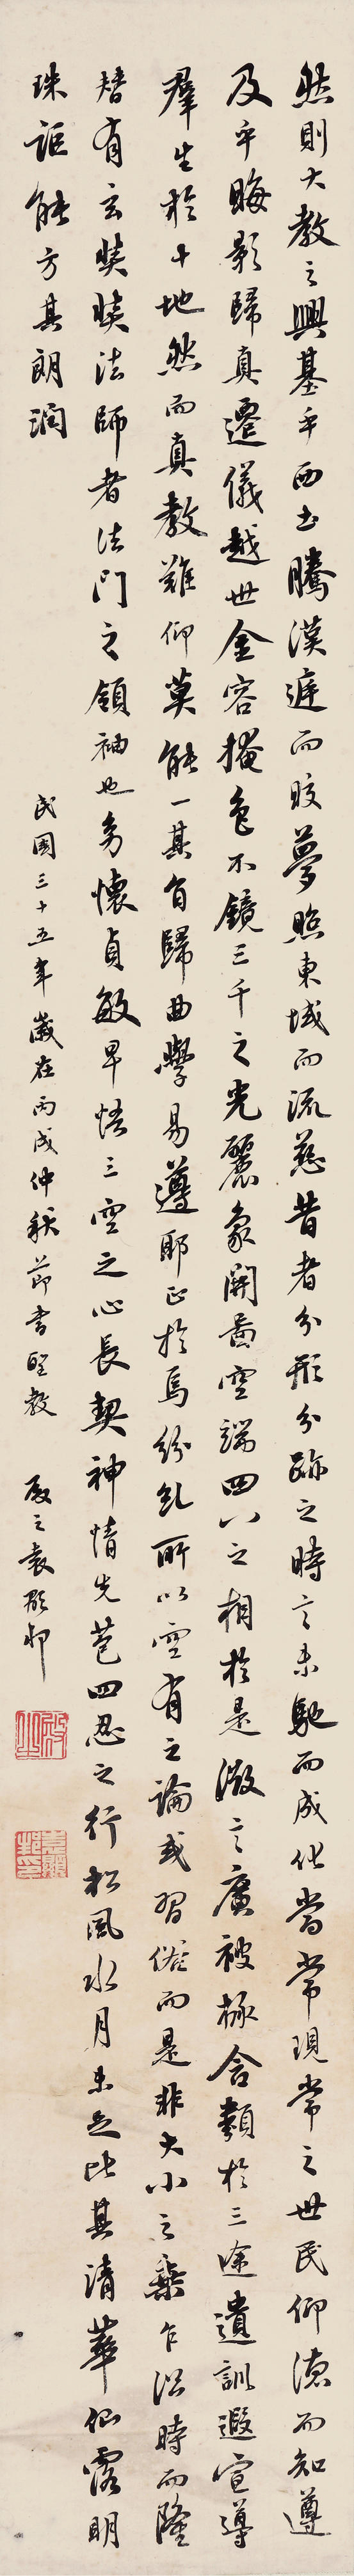 然則大教之興基乎西土騰漢庭而皎夢照東域而流慈昔者分形分跡之時言未馳而成化當常現常之世民仰德而知遵
及乎晦影歸真遷儀越世金容掩色不鏡三千之光麗象開圖空端四八之相於是微言廣被拯含類於三途遺訓遐宣導
羣生於十地然而真教難仰莫能一其旨歸曲學易遵耶正於焉紛糺所以空有之論或習俗而是非大小之乘乍沿時而隆
替有玄奘奘法師者法門之領袖也幼懷貞敏早悟三空之心長契神情先苞四忍之行松風水月未足比其清華仙露明
珠詎能方其朗潤
民國三十五年歲在丙戌仲秋節書聖教